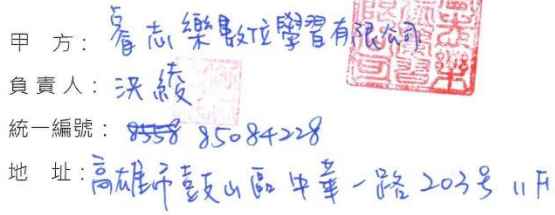 甲 方：睿志樂數位學習有限公司
負 責 人：洪綾
統一編號：8558 85084228
地 址：高雄市鼓山區中華一路203号11F